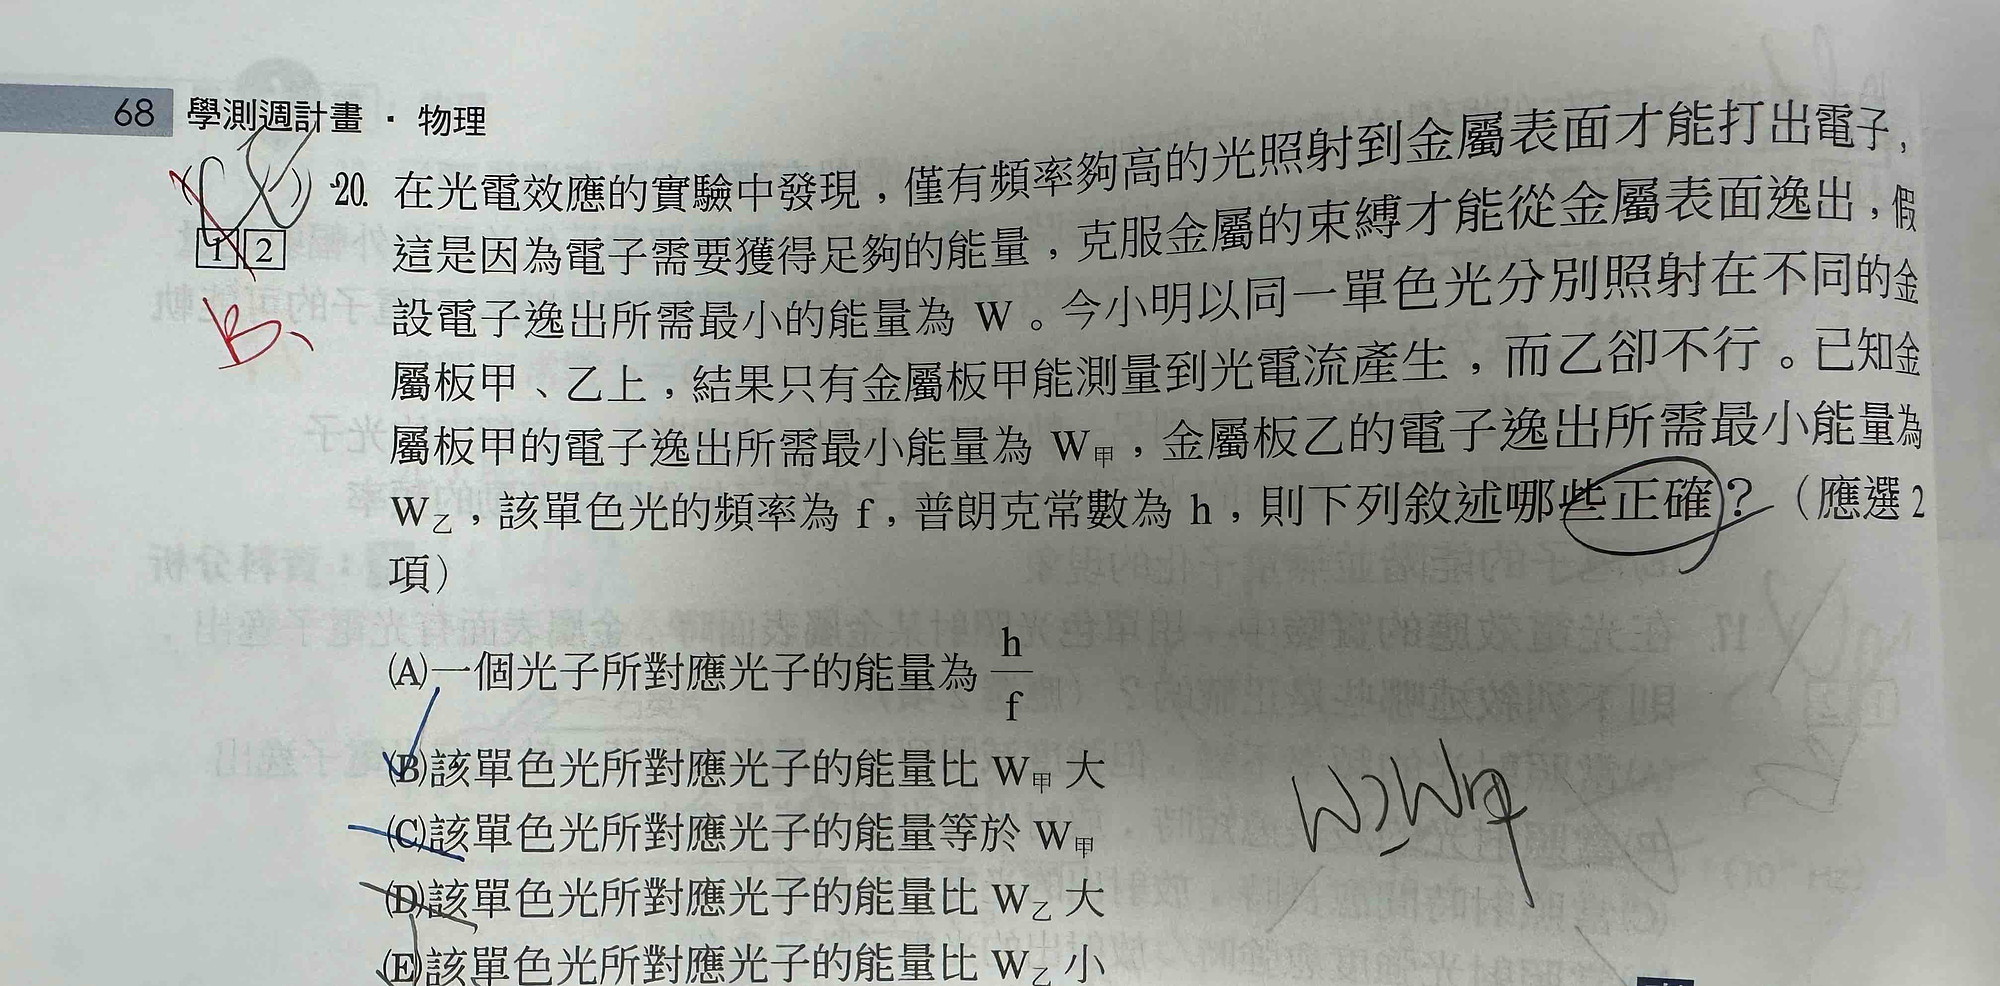 68 學測週計畫・物理
20. 在光電效應的實驗中發現，僅有頻率夠高的光照射到金屬表面才能打出電子，
1 2
這是因為電子需要獲得足夠的能量，克服金屬的束縛才能從金屬表面逸出，假
B、
設電子逸出所需最小的能量為 W。今小明以同一單色光分別照射在不同的金
屬板甲、乙上，結果只有金屬板甲能測量到光電流產生，而乙卻不行。已知金
屬板甲的電子逸出所需最小能量為 W甲，金屬板乙的電子逸出所需最小能量為
W乙，該單色光的頻率為 f，普朗克常數為 h，則下列敘述哪些正確？（應選 2
項）
(A)一個光子所對應光子的能量為 h/f
(B)該單色光所對應光子的能量比 W甲 大
(C)該單色光所對應光子的能量等於 W甲
(D)該單色光所對應光子的能量比 W乙 大
(E)該單色光所對應光子的能量比 W乙 小